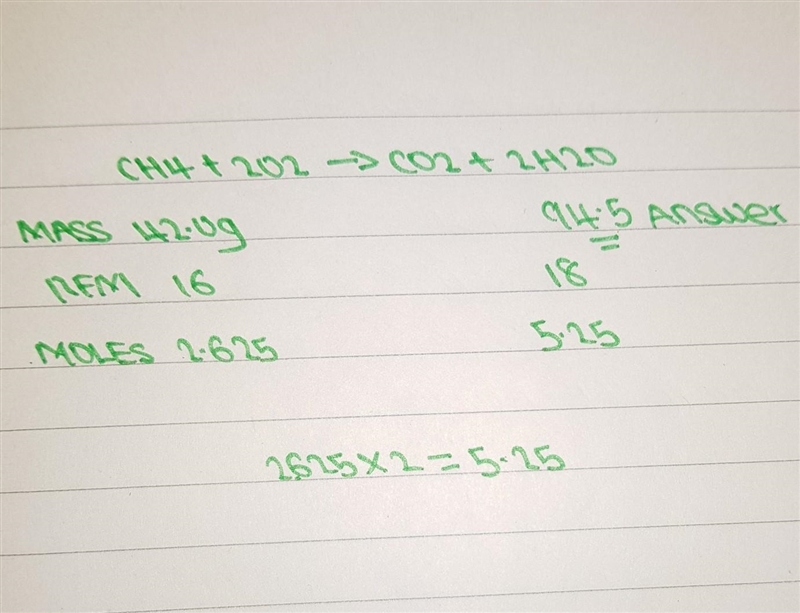 CH4 + 2O2 → CO2 + 2H2O
MASS 42.0g 94.5 Answer
RFM 16 18
MOLES 2.625 5.25
2.625 × 2 = 5.25